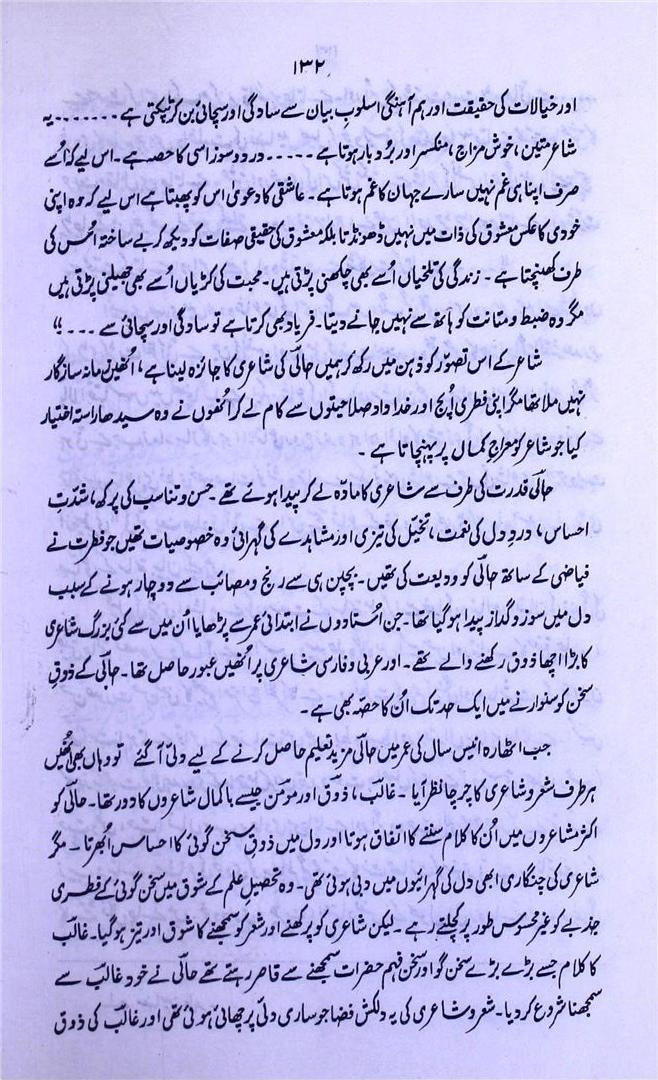 ۱۳۲
اور خیالات کی حقیقت اور ہم آہنگی اسلوب بیان سے سادگی اور سچائی بن کر ٹپکتی ہے ....... یہ
شاعر متین، خوش مزاج، منکسر اور بُردبار ہوتا ہے ..... درد و سوز اسی کا حصہ ہے۔ اس لیے کہ اُسے
صرف اپنا ہی غم نہیں سارے جہان کا غم ہوتا ہے۔ عاشقی کا دعویٰ اس کو پھبتا ہے اس لیے کہ وہ اپنی
خودی کا عکس معشوق کی ذات میں نہیں ڈھونڈتا بلکہ معشوق کی حقیقی صفات کو دیکھ کر بے ساختہ اُس کی
طرف کھنچتا ہے۔ زندگی کی تلخیاں اُسے بھی چکھنی پڑتی ہیں۔ محبت کی کڑیاں اُسے بھی جھیلنی پڑتی ہیں
مگر وہ ضبط و متانت کو ہاتھ سے نہیں جانے دیتا۔ فریاد بھی کرتا ہے تو سادگی اور سچائی سے ... "
شاعر کے اس تصوّر کو ذہن میں رکھ کر ہمیں حالیؔ کی شاعری کا جائزہ لینا ہے، انھیں زمانہ سازگار
نہیں ملا تھا مگر اپنی فطری اُپج اور خداداد صلاحیتوں سے کام لے کر انھوں نے وہ سیدھا راستہ اختیار
کیا جو شاعر کو معراجِ کمال پر پہنچاتا ہے۔
حالیؔ قدرت کی طرف سے شاعری کا مادّہ لے کر پیدا ہوئے تھے۔ حسن و تناسب کی پرکھ، شدّتِ
احساس، دردِ دل کی نعمت، تخیّل کی تیزی اور مشاہدے کی گہرائی وہ خصوصیات تھیں جو فطرت نے
فیاضی کے ساتھ حالیؔ کو ودیعت کی تھیں۔ بچپن ہی سے رنج و مصائب سے دوچار ہونے کے سبب
دل میں سوز و گداز پیدا ہو گیا تھا۔ جن اُستادوں نے ابتدائی عمر سے پڑھایا اُن میں سے کئی بزرگ شاعری
کا بڑا اچھا ذوق رکھنے والے تھے۔ اور عربی و فارسی شاعری پر انھیں عبور حاصل تھا۔ حالیؔ کے ذوقِ
سخن کو سنوارنے میں ایک حد تک اُن کا حصہ بھی ہے۔
جب اٹھارہ انیس سال کی عمر میں حالیؔ مزید تعلیم حاصل کرنے کے لیے دلّی آ گئے تو وہاں بھی اُنھیں
ہر طرف شعر و شاعری کا چرچا نظر آیا۔ غالبؔ، ذوقؔ اور مومنؔ جیسے باکمال شاعروں کا دور تھا۔ حالیؔ کو
اکثر مشاعروں میں اُن کا کلام سننے کا اتفاق ہوتا اور دل میں ذوقِ سخن گوئی کا احساس اُبھرتا۔ مگر
شاعری کی چنگاری ابھی دل کی گہرائیوں میں دبی ہوئی تھی۔ وہ تحصیلِ علم کے شوق میں سخن گوئی کے فطری
جذبے کو غیر محسوس طور پر کچلتے رہے۔ لیکن شاعری کو پرکھنے اور شعر کو سمجھنے کا شوق اور تیز ہو گیا۔ غالبؔ
کا کلام جسے بڑے بڑے سخن گو اور سخن فہم حضرات سمجھنے سے قاصر رہتے تھے حالیؔ نے خود غالبؔ سے
سمجھنا شروع کر دیا۔ شعر و شاعری کی یہ دلکش فضا جو ساری دلّی پر چھائی ہوئی تھی اور غالبؔ کی ذوق